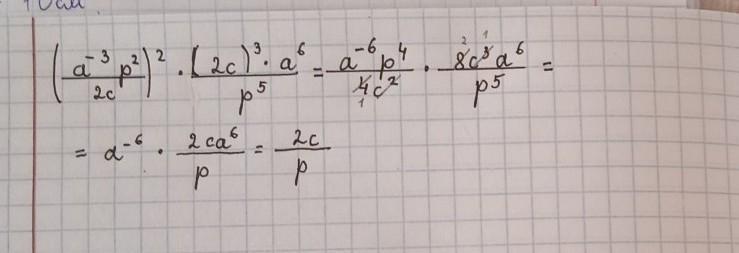 (a⁻³p²/2c)² · (2c)³ · a⁶/p⁵ = a⁻⁶p⁴/4c² · 8c³a⁶/p⁵ =
= a⁻⁶ · 2ca⁶/p = 2c/p